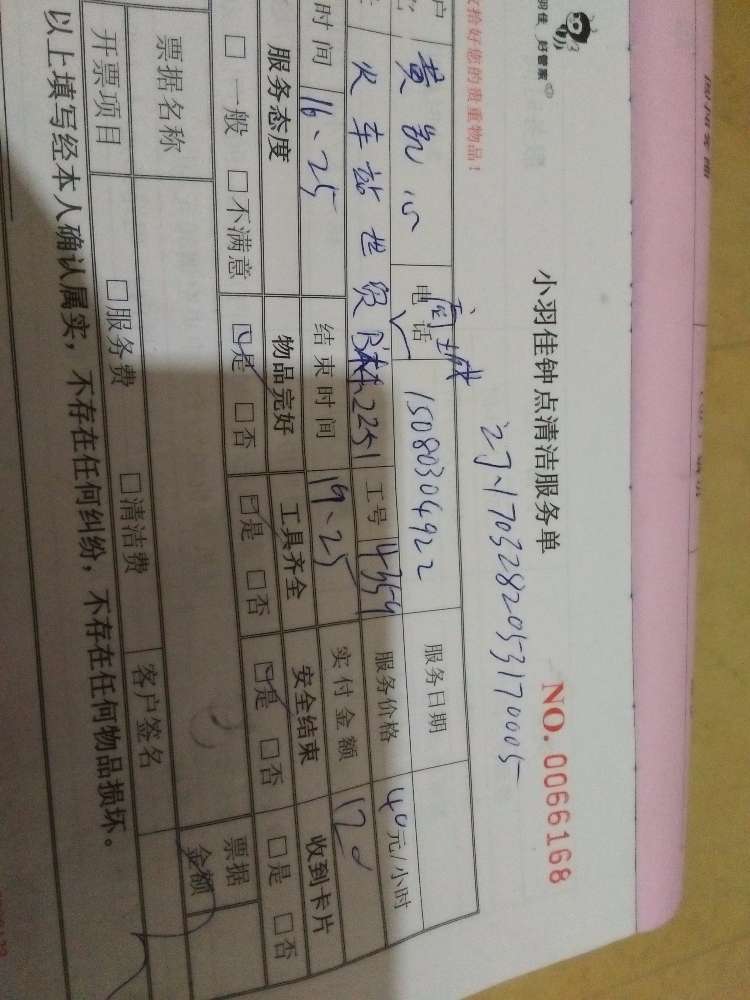 羽佳 好管家
小羽佳钟点清洁服务单
NO. 0066168
收拾好您的贵重物品！
订170328205317005
商城
户 黄 心 电话 15080304922 服务日期
火车站世贸B栋2251 工号 4359 服务价格 40元/小时
时间 16、25 结束时间 19、25 实付金额 120
服务态度 物品完好 工具齐全 安全结束 收到卡片
□一般 □不满意 ☑是 □否 ☑是 □否 ☑是 □否 □是 □否
票据名称 票据金额
开票项目 □服务费 □清洁费 客户签名
以上填写经本人确认属实，不存在任何纠纷，不存在任何物品损坏。